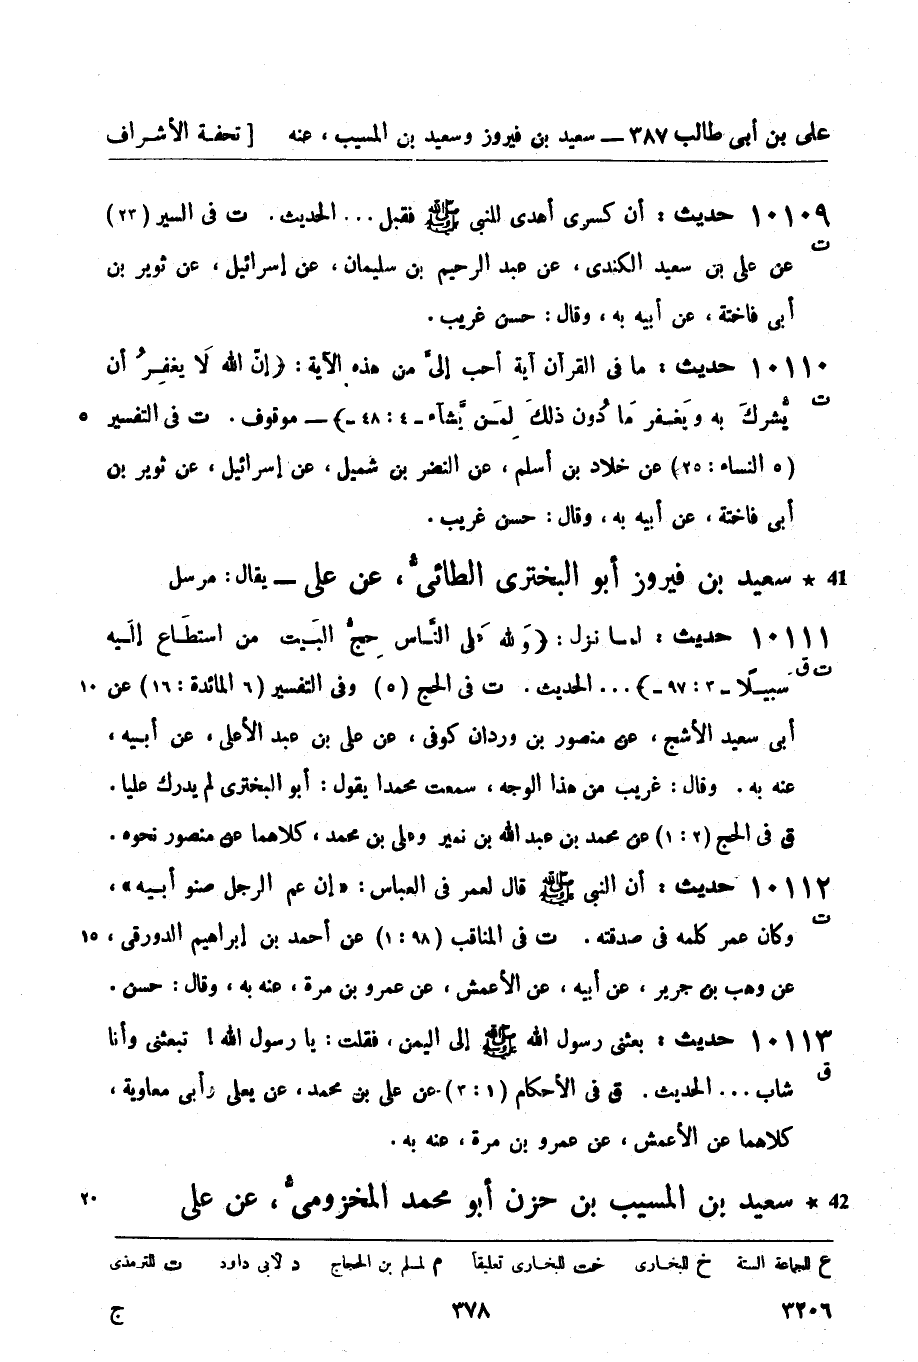 على بن أبى طالب ٣٨٧ — سعيد بن فيروز وسعيد بن المسيب ، عنه [ تحفة الأشراف
١٠١٠٩ حديث : أن كسرى أهدى للنبى ﷺ فقبل ... الحديث . ت فى السير (٢٣)
ت
عن على بن سعيد الكندى ، عن عبد الرحيم بن سليمان ، عن إسرائيل ، عن ثوير بن
أبى فاختة ، عن أبيه به ، وقال : حسن غريب .
١٠١١٠ حديث : ما فى القرآن آية أحب إلىَّ من هذه الآية : ﴿ إنّ الله لَا يغفِرُ أن
ت
يُّشركَ به ويَغفر مَا دُون ذلكَ لِمَن يَّشآء - ٤ : ٤٨ -﴾ — موقوف . ت فى التفسير ٥
(٥ النساء : ٢٥) عن خلاد بن أسلم ، عن النضر بن شميل ، عن إسرائيل ، عن ثوير بن
أبى فاختة ، عن أبيه به ، وقال : حسن غريب .
41 * سعيد بن فيروز أبو البخترى الطائى ، عن على — يقال : مرسل
١٠١١١ حديث : لما نزل : ﴿ وَلله عَلى النَّاس حِجُّ البَيت من استطَاع إلَيه
ت ق
سبيلًا - ٣ : ٩٧ -﴾ ... الحديث . ت فى الحج (٥) وفى التفسير (٦ المائدة : ١٦) عن ١٠
أبى سعيد الأشج ، عن منصور بن وردان كوفى ، عن على بن عبد الأعلى ، عن أبيه ،
عنه به . وقال : غريب من هذا الوجه ، سمعت محمدا يقول : أبو البخترى لم يدرك عليا .
ق فى الحج (٢ : ١) عن محمد بن عبد الله بن نمير وعلى بن محمد ، كلاهما عن منصور نحوه .
١٠١١٢ حديث : أن النبى ﷺ قال لعمر فى العباس : «إن عم الرجل صنو أبيه» ،
ت
وكان عمر كلمه فى صدقته . ت فى المناقب (٩٨ : ١) عن أحمد بن إبراهيم الدورقى ، ١٥
عن وهب بن جرير ، عن أبيه ، عن الأعمش ، عن عمرو بن مرة ، عنه به ، وقال : حسن .
١٠١١٣ حديث : بعثنى رسول الله ﷺ إلى اليمن ، فقلت : يا رسول الله ! تبعثنى وأنا
ق
شاب ... الحديث . ق فى الأحكام (١ : ٣) عن على بن محمد ، عن يعلى وأبى معاوية ،
كلاهما عن الأعمش ، عن عمرو بن مرة ، عنه به .
42 * سعيد بن المسيب بن حزن أبو محمد المخزومى ، عن على ٢٠
ع للجماعة الستة خ للبخارى خت للبخارى تعليقاً م لمسلم بن الحجاج د لأبى داود ت للترمذى
٣٢٠٦ ٣٧٨ ج